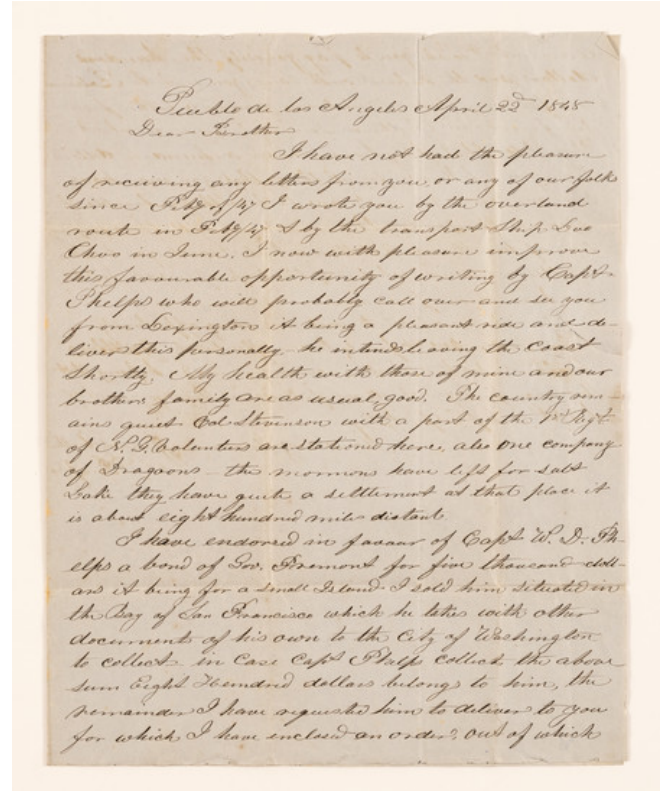 Pueblo de los Angeles April 22d 1848
Dear Brother
I have not had the pleasure
of receiving any letters from you, or any of our folk
since Feby of /47 I wrote you by the overland
route in Feby/47 & by the transport Ship Loo
Choo in June, I now with pleasure improve
this favourable opportunity of writing by Capt.
Phelps who will probably call over and see you
from Lexington it being a pleasant ride and de-
liver this personally he intends leaving the Coast
Shortly. My health with those of mine and our
brothers family are as usual, good. The country rem-
ains quiet Col Stevenson with a part of the 1st Regt
of N.Y. Volunteers are stationed here, also one company
of Dragoons - the mormons have left for salt
Lake they have quite a settlement at that place it
is about eight hundred miles distant
I have endorsed in favour of Capt W. D. Ph-
elps a bond of Gov. Fremont for five thousand doll-
ars it being for a small Island I sold him situated in
the Bay of San Francisco which he takes with other
documents of his own to the City of Washington
to collect in case Capt Phelps collect the above
sum Eight Hundred dollars belong to him, the
remainder I have requested him to deliver to you
for which I have enclosed an order, out of which